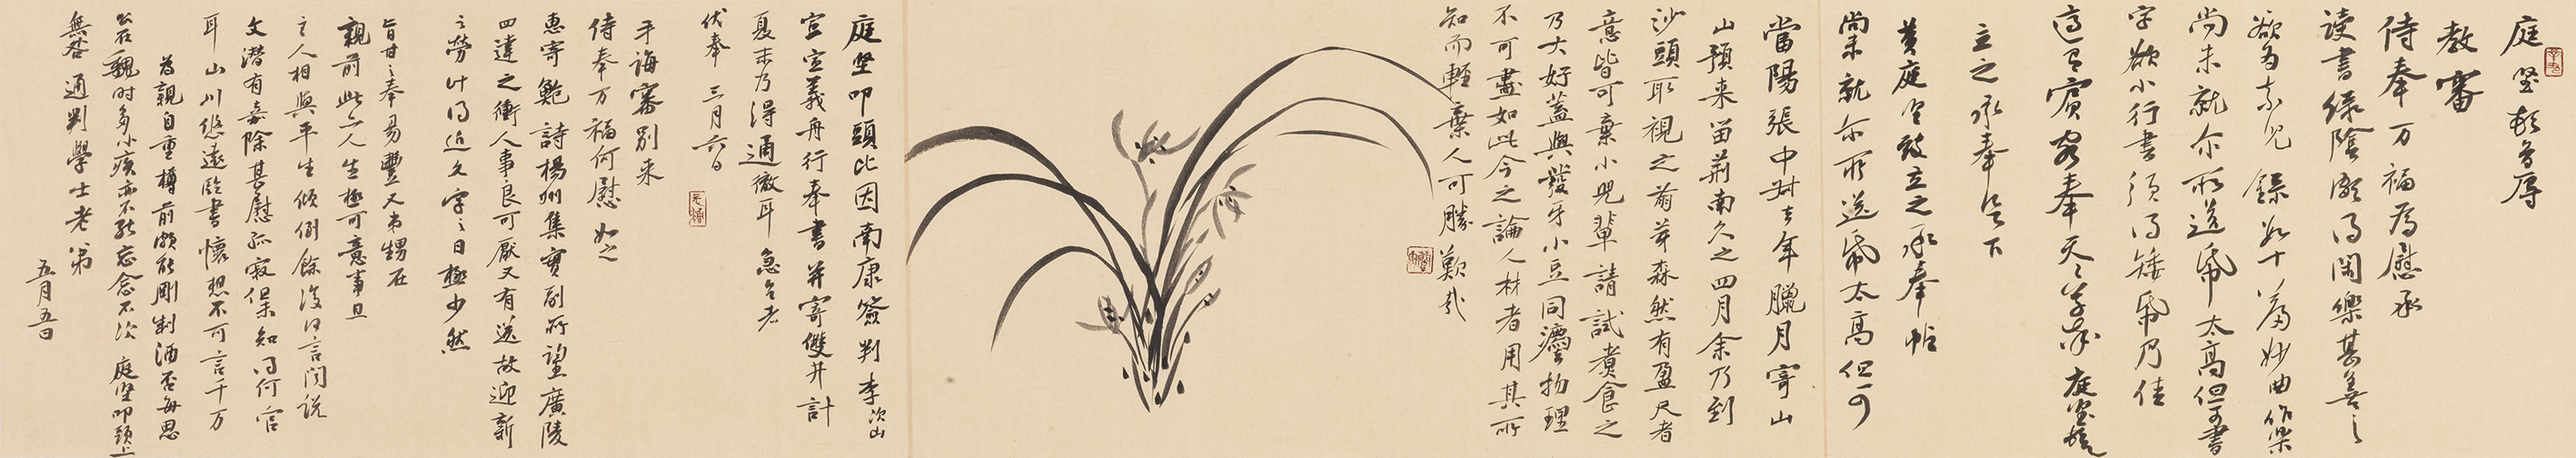 庭堅頓首辱
教審
侍奉万福為慰承
讀書綠陰頗得閑樂甚善々
欲為索兒錄數十篇妙曲作樂
尚未就尔所送帋太高但可書
字欲小行書須得矮帋乃佳
適有賓客奉答草率庭堅頓
立之承奉足下
黃庭堅致立之承奉帖
尚未就尔所送帋太高但可
當陽張中叔去年臘月寄山
山預来留荊南久之四月余乃到
沙頭取視之萠芽森然有盈尺者
意皆可棄小兒輩請試煮食之
乃大好蓋與發牙小豆同灋物理
不可盡如此今之論人材者用其所
知而輕棄人可勝歎哉
庭堅叩頭比因南康簽判李次山
宣義舟行奉書并寄雙井計
夏末乃得通徹耳急足者
伏奉三月六日
手誨審別来
侍奉万福何慰如之
惠寄鮑詩楊州集實副所望廣陵
四達之衝人事良可厭又有送故迎新
之勞計得近文字之日極少然
旨甘之奉易豐又弟甥在
親前此亦人生極可意事
之人相與平生傾倒餘復何言聞說
文潛有嘉除甚慰孤寂但未知得何官
耳山川悠遠臨書懷想不可言千万
為親自重樽前頗能剛制酒否每思
公在魏時多小疾亦不能忘念不次庭堅叩頭上
無咎通判學士老弟
五月五日